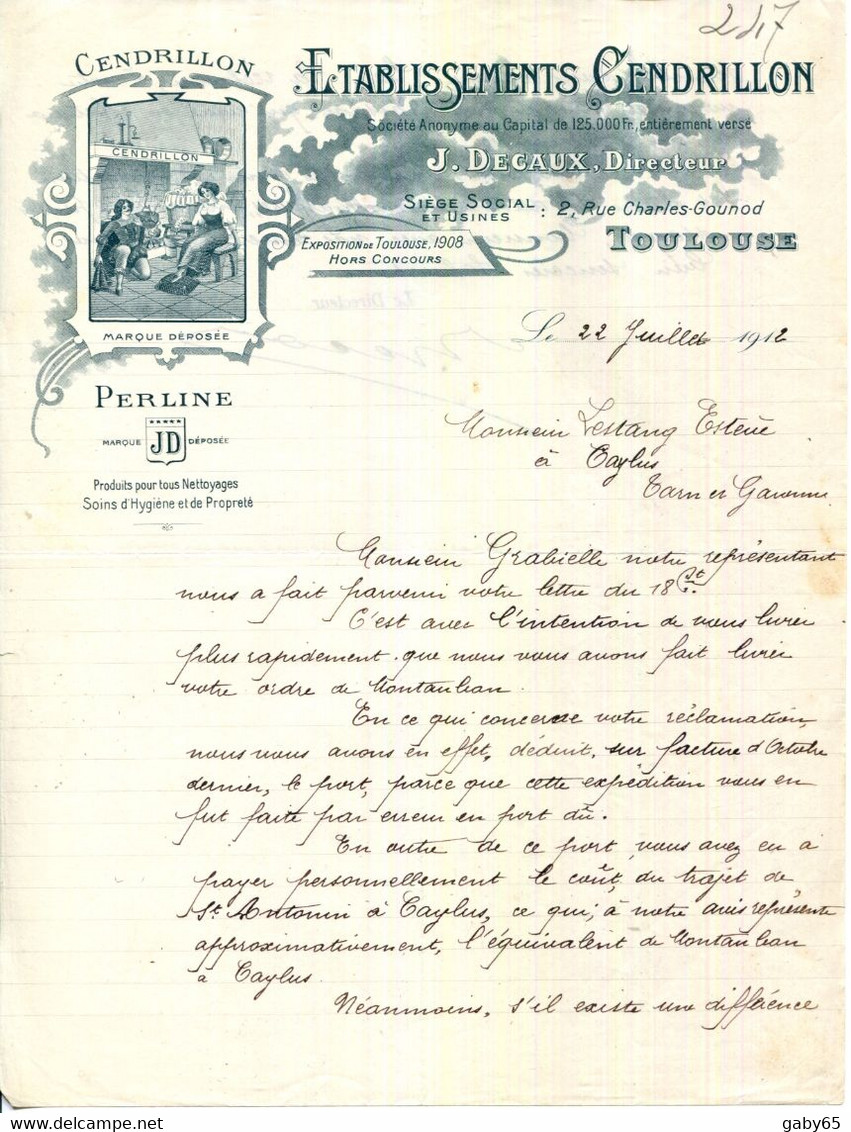 247
CENDRILLON
CENDRILLON
MARQUE DÉPOSÉE
ETABLISSEMENTS CENDRILLON
Société Anonyme au Capital de 125.000 Fr., entièrement versé
J. DECAUX, Directeur
SIÈGE SOCIAL
ET USINES : 2, Rue Charles-Gounod
TOULOUSE
EXPOSITION DE TOULOUSE, 1908
HORS CONCOURS
PERLINE
MARQUE JD DÉPOSÉE
Produits pour tous Nettoyages
Soins d'Hygiène et de Propreté
Le 22 Juillet 1912
Monsieur Lestang Estève
à Caylus
Tarn et Garonne
Monsieur Grabielle notre représentant
nous a fait parvenir votre lettre du 18 ct.
C'est avec l'intention de vous livrer
plus rapidement que nous vous avons fait livrer
votre ordre de Montauban.
En ce qui concerne votre réclamation,
nous vous avons en effet, déduit, sur facture d'Octobre
dernier, le port, parce que cette expédition vous en
fut faite par erreur en port dû.
En outre de ce port, vous avez eu à
payer personnellement le coût, du trajet de
St. Antonin à Caylus, ce qui, à notre avis représente
approximativement, l'équivalent de Montauban
à Caylus.
Néanmoins, s'il existe une différence
Le Directeur
gaby65